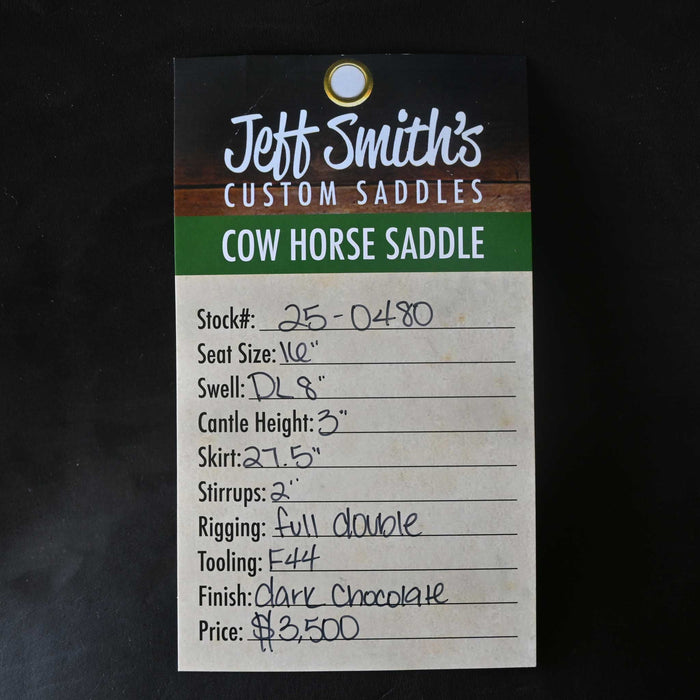 Jeff Smith's
CUSTOM SADDLES
COW HORSE SADDLE
Stock#: 25-0480
Seat Size: 16"
Swell: DL 8"
Cantle Height: 3"
Skirt: 27.5"
Stirrups: 2"
Rigging: full double
Tooling: F44
Finish: dark chocolate
Price: $3,500